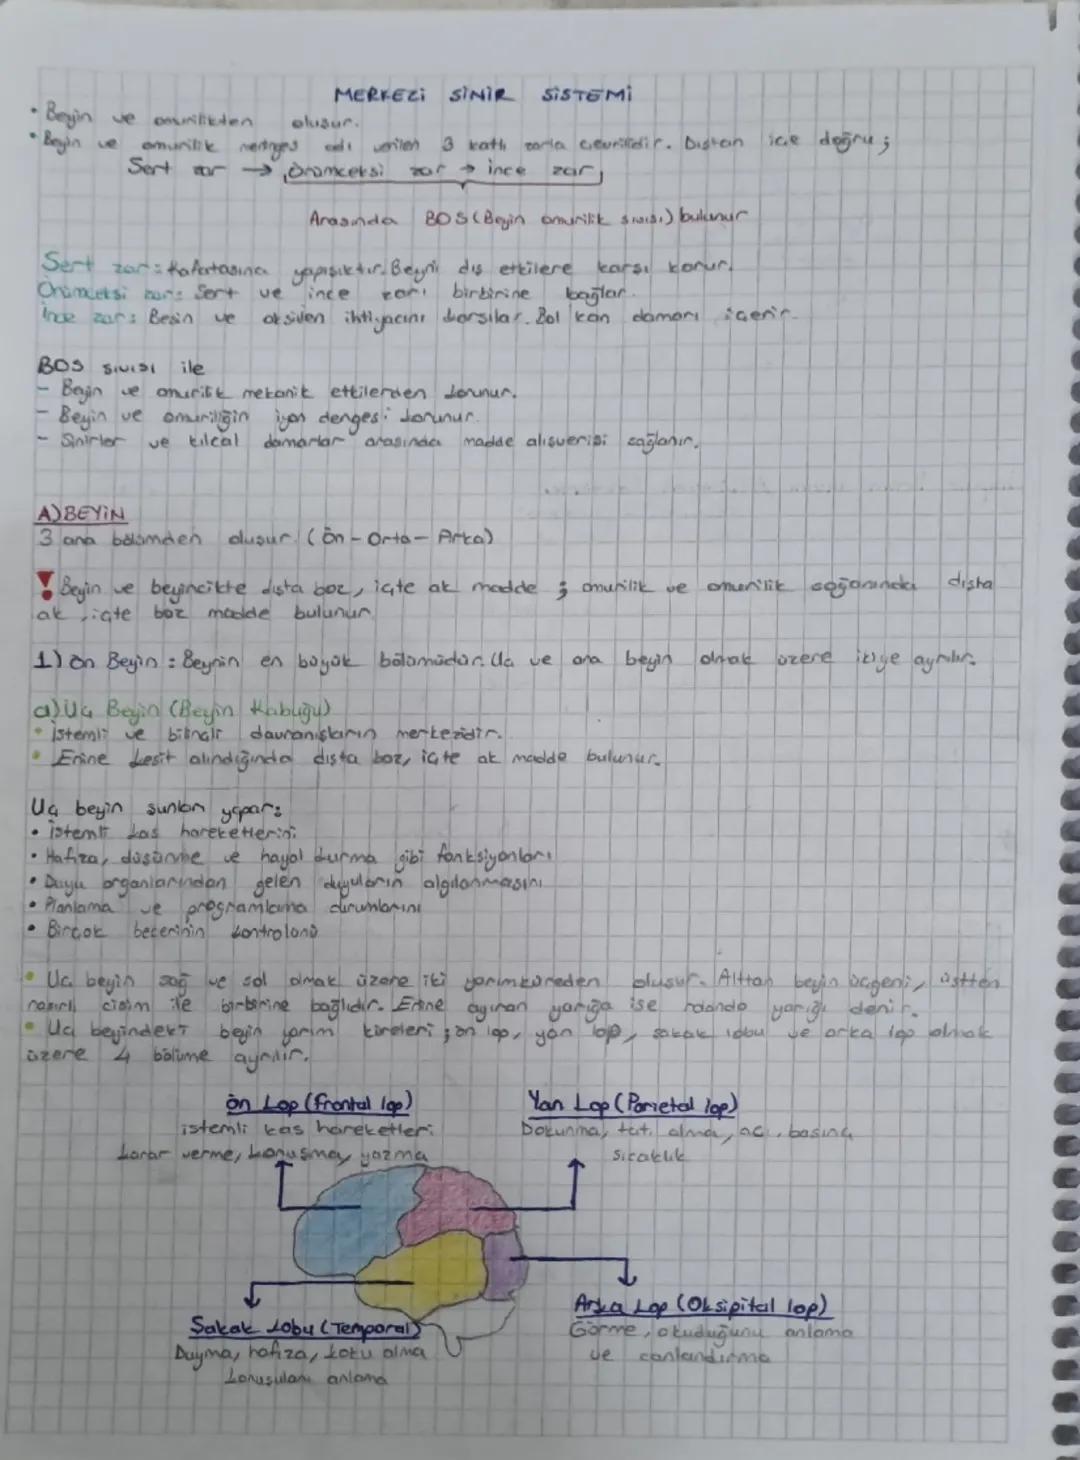 MERKEZİ SİNİR SİSTEMİ
• Beyin ve omurilikten oluşur.
• Beyin ve omurilik meninges adı verilen 3 katlı zarla çevrilidir. Dıştan içe doğru;
Sert zar → Örümceksi zar → ince zar
Arasında BOS (Beyin omurilik sıvısı) bulunur
Sert zar: Kafatasına yapışıktır. Beyni dış etkilere karşı korur.
Örümceksi zar: Sert ve ince zarı birbirine bağlar.
İnce zar: Besin ve oksijen ihtiyacını karşılar. Bol kan damarı içerir.
BOS sıvısı ile
- Beyin ve omurilik mekanik etkilerden korunur.
- Beyin ve omuriliğin iyon dengesi korunur.
- Sinirler ve kılcal damarlar arasında madde alışverişi sağlanır.
A) BEYİN
3 ana bölümden oluşur. (Ön - Orta - Arka)
! Beyin ve beyincikte dışta boz, içte ak madde ; omurilik ve omurilik soğanında dışta
ak, içte boz madde bulunur.
1) Ön Beyin : Beynin en büyük bölümüdür. Uç ve ara beyin olmak üzere ikiye ayrılır.
a) Uç Beyin (Beyin Kabuğu)
• İstemli ve bilinçli davranışların merkezidir.
• Enine kesit alındığında dışta boz, içte ak madde bulunur.
Uç beyin şunları yapar:
• İstemli kas hareketlerini
• Hafıza, düşünme ve hayal kurma gibi fonksiyonları
• Duyu organlarından gelen duyuların algılanmasını
• Planlama ve programlama durumlarını
• Birçok becerinin kontrolünü
• Uç beyin sağ ve sol olmak üzere iki yarımküreden oluşur. Alttan beyin üçgeni, üstten
nasırlı cisim ile birbirine bağlıdır. Enine ayıran yarığa ise rolando yarığı denir.
• Uç beyindeki beyin yarım küreleri ; ön lop, yan lop, şakak lobu ve arka lop olmak
üzere 4 bölüme ayrılır.
Ön Lop (Frontal lop)
istemli kas hareketleri
karar verme, konuşma, yazma
Yan Lop (Parietal lop)
Dokunma, tat alma, acı, basınç
sıcaklık
Arka Lop (Oksipital lop)
Görme, okuduğunu anlama
ve canlandırma
Şakak Lobu (Temporal)
Duyma, hafıza, koku alma
konuşulanı anlama